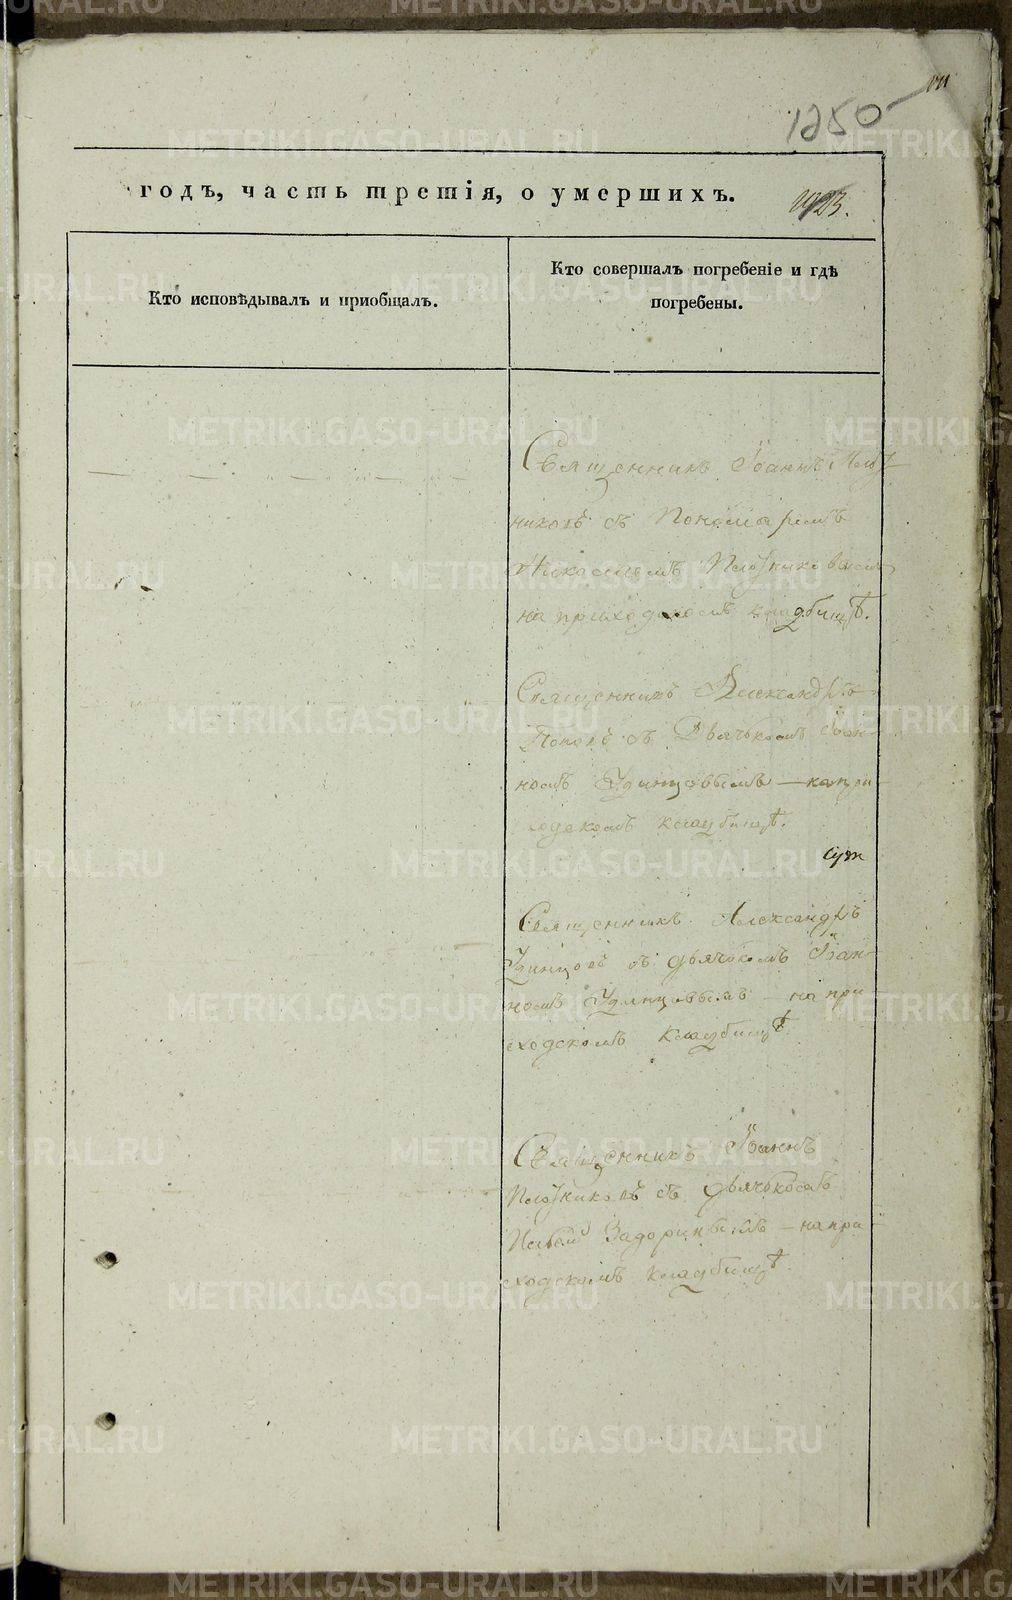 1250
годъ, часть третія, о умершихъ.
Кто исповѣдывалъ и приобщалъ.
Кто совершалъ погребеніе и гдѣ
погребены.
Священникъ Іоаннъ Плот
никовъ съ Пономаремъ
Плотниковымъ
на приходскомъ кладбищѣ.
Священникъ Александръ
Поповъ съ Дьячкомъ Іоан-
номъ Удинцовымъ — на при
ходскомъ кладбищѣ.
Священникъ Александръ
Удинцовъ съ дьячкомъ Іоан-
номъ Удинцовымъ — на при
ходскомъ кладбищѣ
Священникъ Іоаннъ
Плотниковъ съ дьячкомъ
Задоринымъ — на при
ходскомъ кладбищѣ.
METRIKI.GASO-URAL.RU